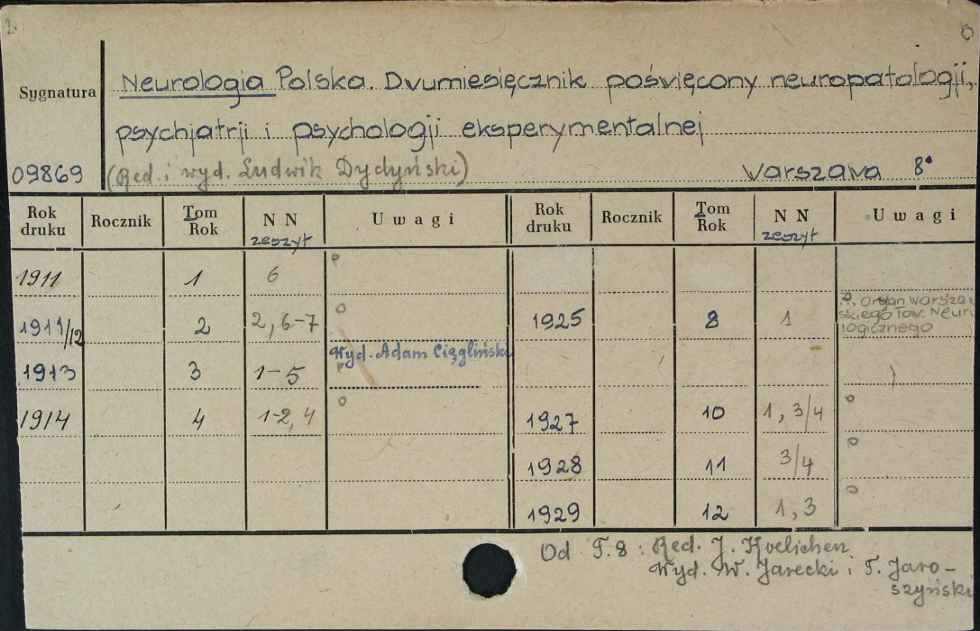 Neurologia Polska. Dwumiesięcznik poświęcony neuropatologji,
Sygnatura
psychjatrji i psychologji eksperymentalnej
09869 (Red. i wyd. Ludwik Dydyński) Warszawa 8°
Rok druku Rocznik Tom Rok N N zeszyt Uwagi Rok druku Rocznik Tom Rok N N zeszyt Uwagi
1911 1 6
1911/12 2 2, 6-7 1925 8 1 ... Organ Warszaw
skiego Tow. Neuro
logicznego
Wyd. Adam Ciągliński
1913 3 1-5
1914 4 1-2, 4 1927 10 1, 3/4
1928 11 3/4
1929 12 1, 3
Od T. 8: Red. J. Koelichen
Wyd. W. Jarecki i T. Jaro-
szyński